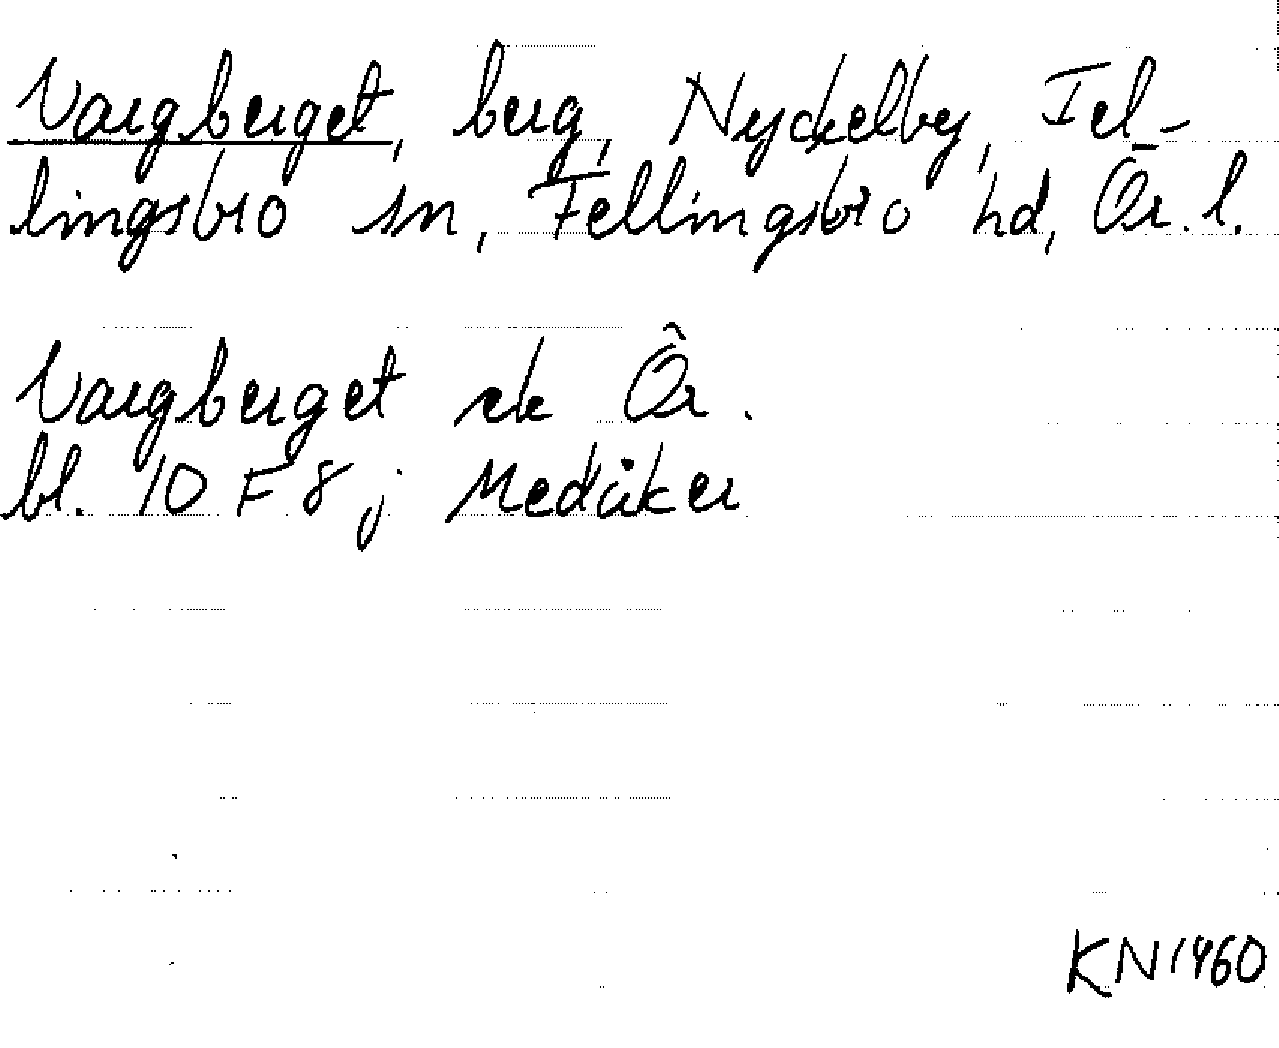 Vargberget, berg, Nyckelby, Fel-
lingsbro sn, Fellingsbro hd, Ör. l.
Vargberget ek Ör.
bl. 10 F 8 j Medåker
KN 1960